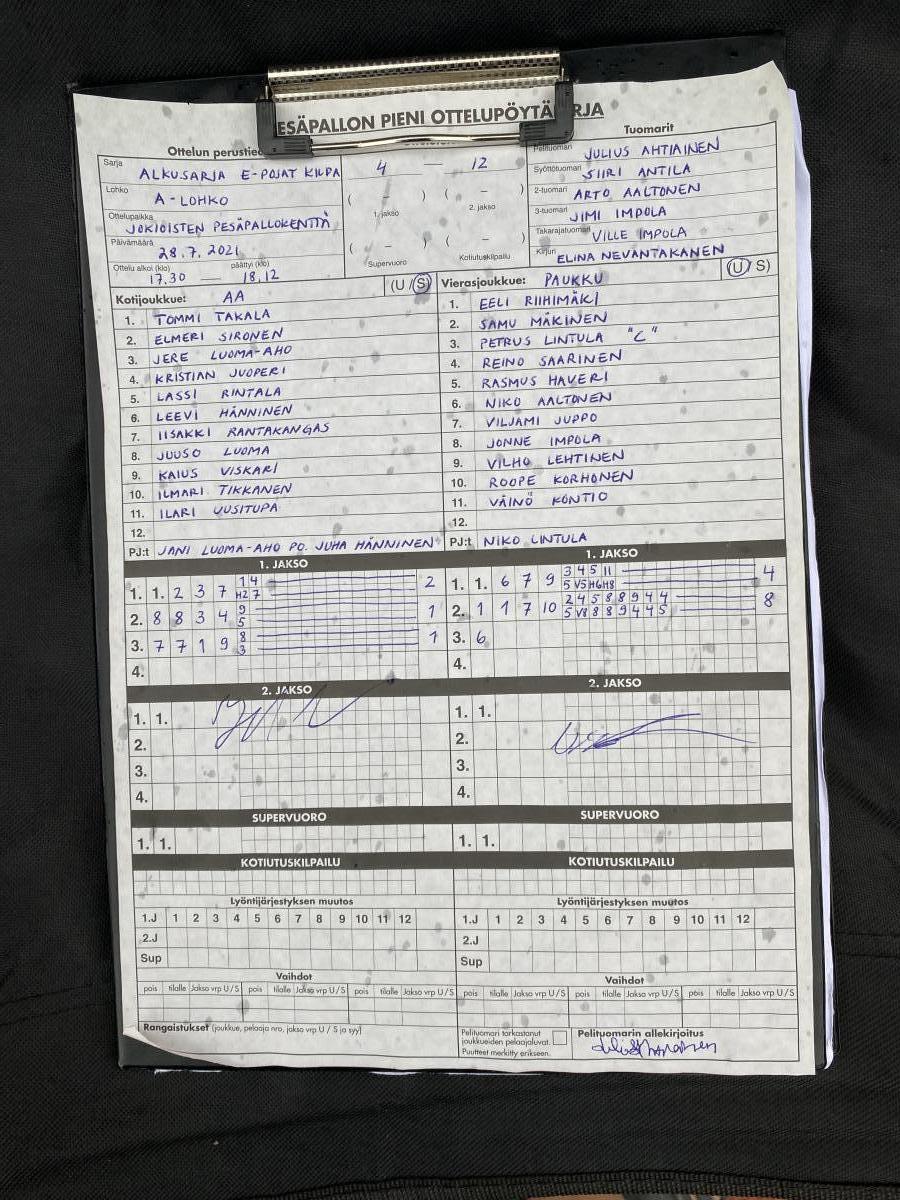 ESÄPALLON PIENI OTTELUPÖYTÄ RJA
Ottelun perustied
Sarja ALKUSARJA E-POJAT KILPA
Lohko A-LOHKO
Ottelupaikka JOKIOISTEN PESÄPALLOKENTTÄ
Päivämäärä 28.7.2021
Ottelu alkoi (klo) 17.30 — päättyi (klo) 18,12
4 — 12
( – ) ( – )
1. jakso 2. jakso
( – ) ( – )
Supervuoro Kotiutuskilpailu
Tuomarit
Pelituomari JULIUS AHTIAINEN
Syöttötuomari SIIRI ANTILA
2-tuomari ARTO AALTONEN
3-tuomari JIMI IMPOLA
Takarajatuomari VILLE IMPOLA
Kirjuri ELINA NEVANTAKANEN
Kotijoukkue: AA (U / S)
1. TOMMI TAKALA
2. ELMERI SIRONEN
3. JERE LUOMA-AHO
4. KRISTIAN JUOPERI
5. LASSI RINTALA
6. LEEVI HÄNNINEN
7. IISAKKI RANTAKANGAS
8. JUUSO LUOMA
9. KAIUS VISKARI
10. ILMARI TIKKANEN
11. ILARI UUSITUPA
12.
PJ:t JANI LUOMA-AHO PO. JUHA HÄNNINEN
Vierasjoukkue: PAUKKU (U / S)
1. EELI RIIHIMÄKI
2. SAMU MÄKINEN
3. PETRUS LINTULA "C"
4. REINO SAARINEN
5. RASMUS HAVERI
6. NIKO AALTONEN
7. VILJAMI JUPPO
8. JONNE IMPOLA
9. VILHO LEHTINEN
10. ROOPE KORHONEN
11. VÄINÖ KONTIO
12.
PJ:t NIKO LINTULA
1. JAKSO
1. 1. 2 3 7 1 4 2
H2 7
2. 8 8 3 4 9 1
5
3. 7 7 1 9 8 1
3
4.
1. JAKSO
1. 1. 6 7 9 3 4 5 11 4
5 V5 H6 H8
2. 1 1 7 10 2 4 5 8 8 9 4 4 8
5 V8 8 8 9 4 4 5
3. 6
4.
2. JAKSO
1. 1.
2.
3.
4.
2. JAKSO
1. 1.
2.
3.
4.
SUPERVUORO
1. 1.
SUPERVUORO
1. 1.
KOTIUTUSKILPAILU
KOTIUTUSKILPAILU
Lyöntijärjestyksen muutos
1.J 1 2 3 4 5 6 7 8 9 10 11 12
2.J
Sup
Lyöntijärjestyksen muutos
1.J 1 2 3 4 5 6 7 8 9 10 11 12
2.J
Sup
Vaihdot
pois tilalle Jakso vrp U/S pois tilalle Jakso vrp U/S pois tilalle Jakso vrp U/S
Vaihdot
pois tilalle Jakso vrp U/S pois tilalle Jakso vrp U/S pois tilalle Jakso vrp U/S
Rangaistukset (joukkue, pelaaja nro, jakso vrp U / S ja syy)
Pelituomari tarkastanut
joukkueiden pelaajaluvat.
Puutteet merkitty erikseen.
Pelituomarin allekirjoitus